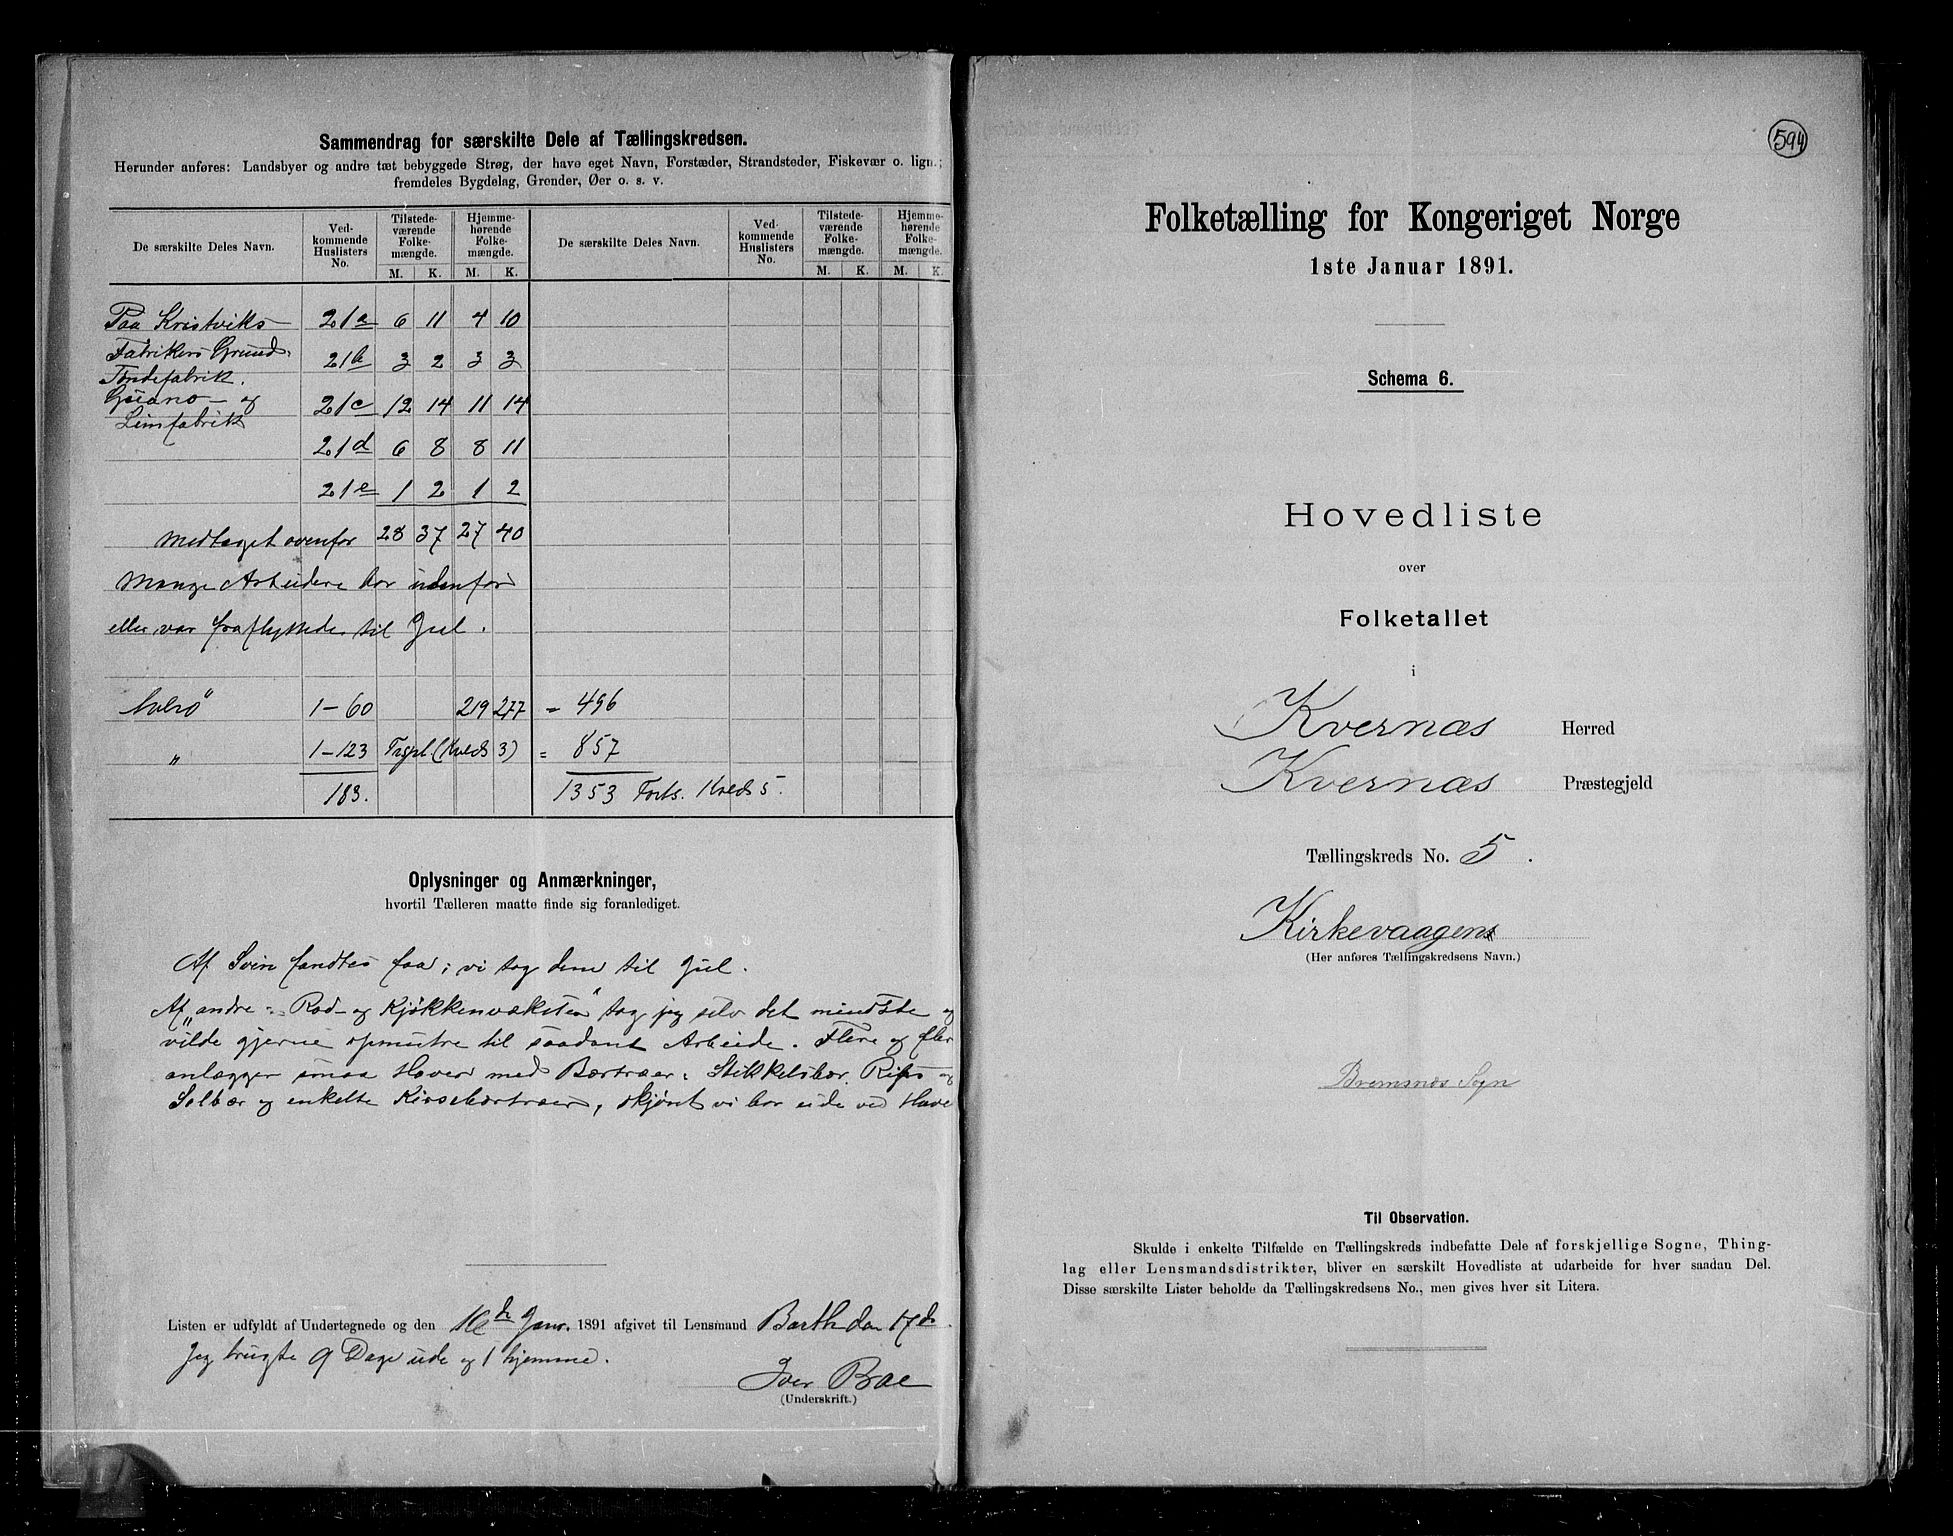 Sammendrag for særskilte Dele af Tællingskredsen.
Herunder anføres: Landsbyer og andre tæt bebyggede Strøg, der have eget Navn, Forstæder, Strandsteder, Fiskevær o. lign.;
fremdeles Bygdelag, Grender, Øer o. s. v.
De særskilte Deles Navn. Ved-kommende Huslisters No. Tilstede-værende Folke-mængde. Hjemme-hørende Folke-mængde. De særskilte Deles Navn. Ved-kommende Huslisters No. Tilstede-værende Folke-mængde. Hjemme-hørende Folke-mængde.
M. K. M. K. M. K. M. K.
Paa Kristviks 21a 6 11 4 10
Fabrikers Grund. 21b 3 2 3 3
Tøndefabrik.
Guano- og 21c 12 14 11 14
Limfabrik
21d 6 8 8 11
21e 1 2 1 2
Medtaget ovenfor 28 37 27 40
Mange Arbeidere bor udenfor
eller var fraflyttede til Jul.
1-60 219 277 = 496
" 1-123 (Kreds 3) = 857
183. 1353 Forts. Kreds 5.
Oplysninger og Anmærkninger,
hvortil Tælleren maatte finde sig foranlediget.
Af Svin fandtes faa; vi tog dem til Jul.
Af andre "Rod- og Kjøkkenvækster" tog jeg selv det mindste og
vilde gjerne opmuntre til saadant Arbeide. Flere og fler
anlægger smaa Haver med Bærtræer: Stikkelsbær, Rips- og
Solbær og enkelte Kirsebærtræer, skjønt vi bor ude ved Have
Listen er udfyldt af Undertegnede og den 16de Janr. 1891 afgivet til Lensmand Barth den 17de.
Jeg brugte 9 Dage ude og 1 hjemme.
Iver Bae
(Underskrift.)
594
Folketælling for Kongeriget Norge
1ste Januar 1891.
Schema 6.
Hovedliste
over
Folketallet
i
Kvernæs Herred
Kvernæs Præstegjeld
Tællingskreds No. 5.
Kirkevaagen
(Her anføres Tællingskredsens Navn.)
Bremsnæs Sogn
Til Observation.
Skulde i enkelte Tilfælde en Tællingskreds indbefatte Dele af forskjellige Sogne, Thing-
lag eller Lensmandsdistrikter, bliver en særskilt Hovedliste at udarbeide for hver saadan Del.
Disse særskilte Lister beholde da Tællingskredsens No., men gives hver sit Litera.